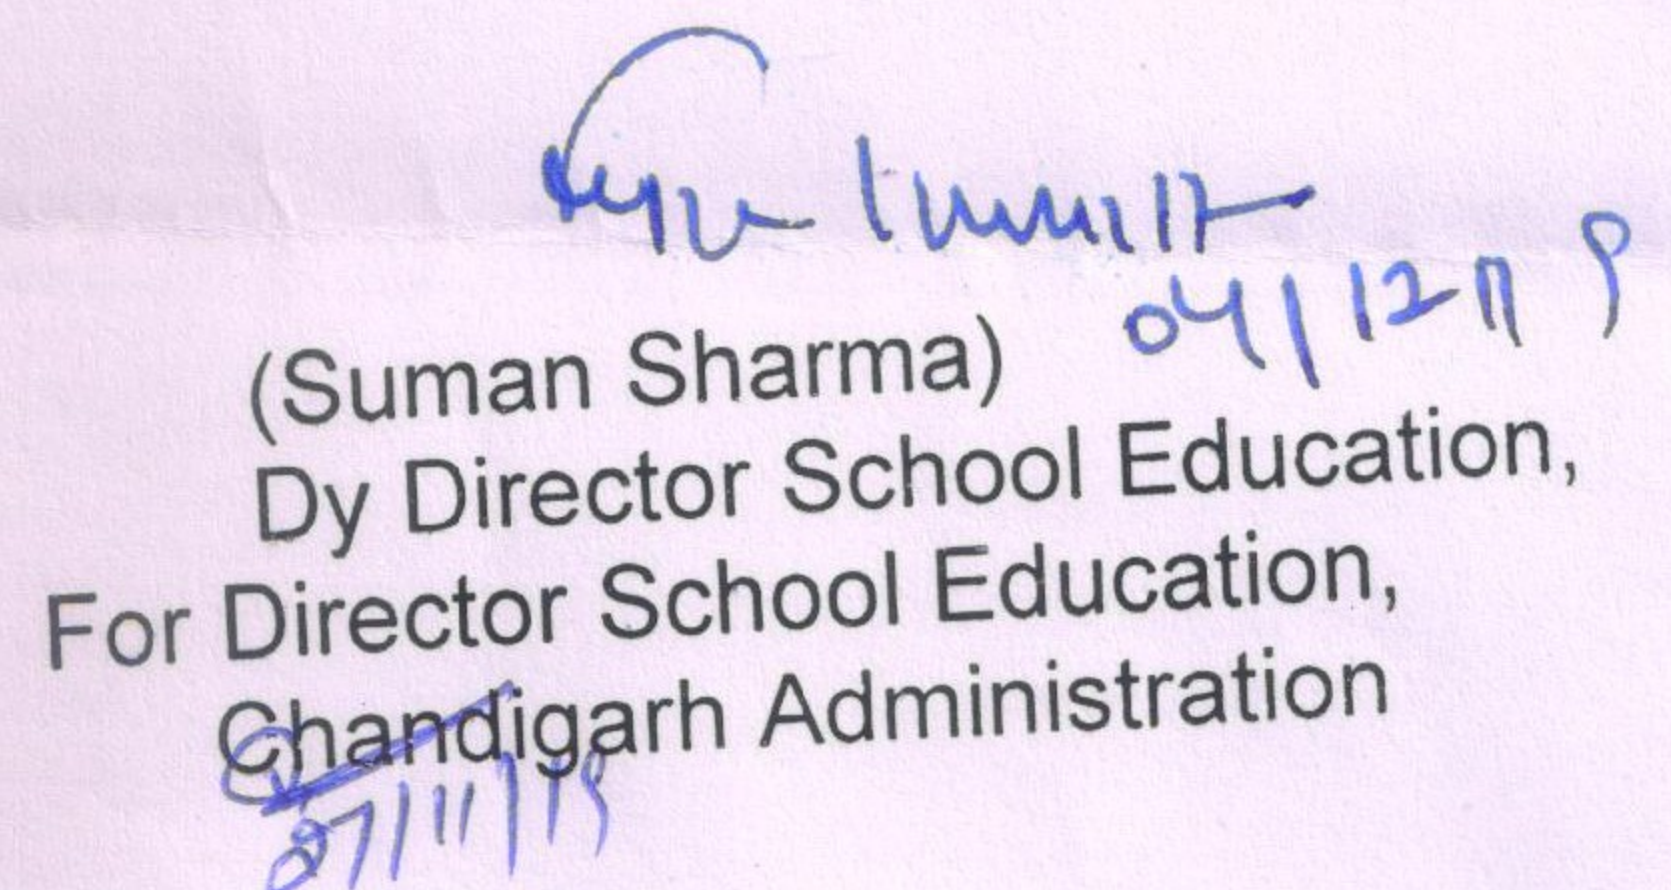 04/12/19
(Suman Sharma)
Dy Director School Education,
For Director School Education,
Chandigarh Administration
07/11/19